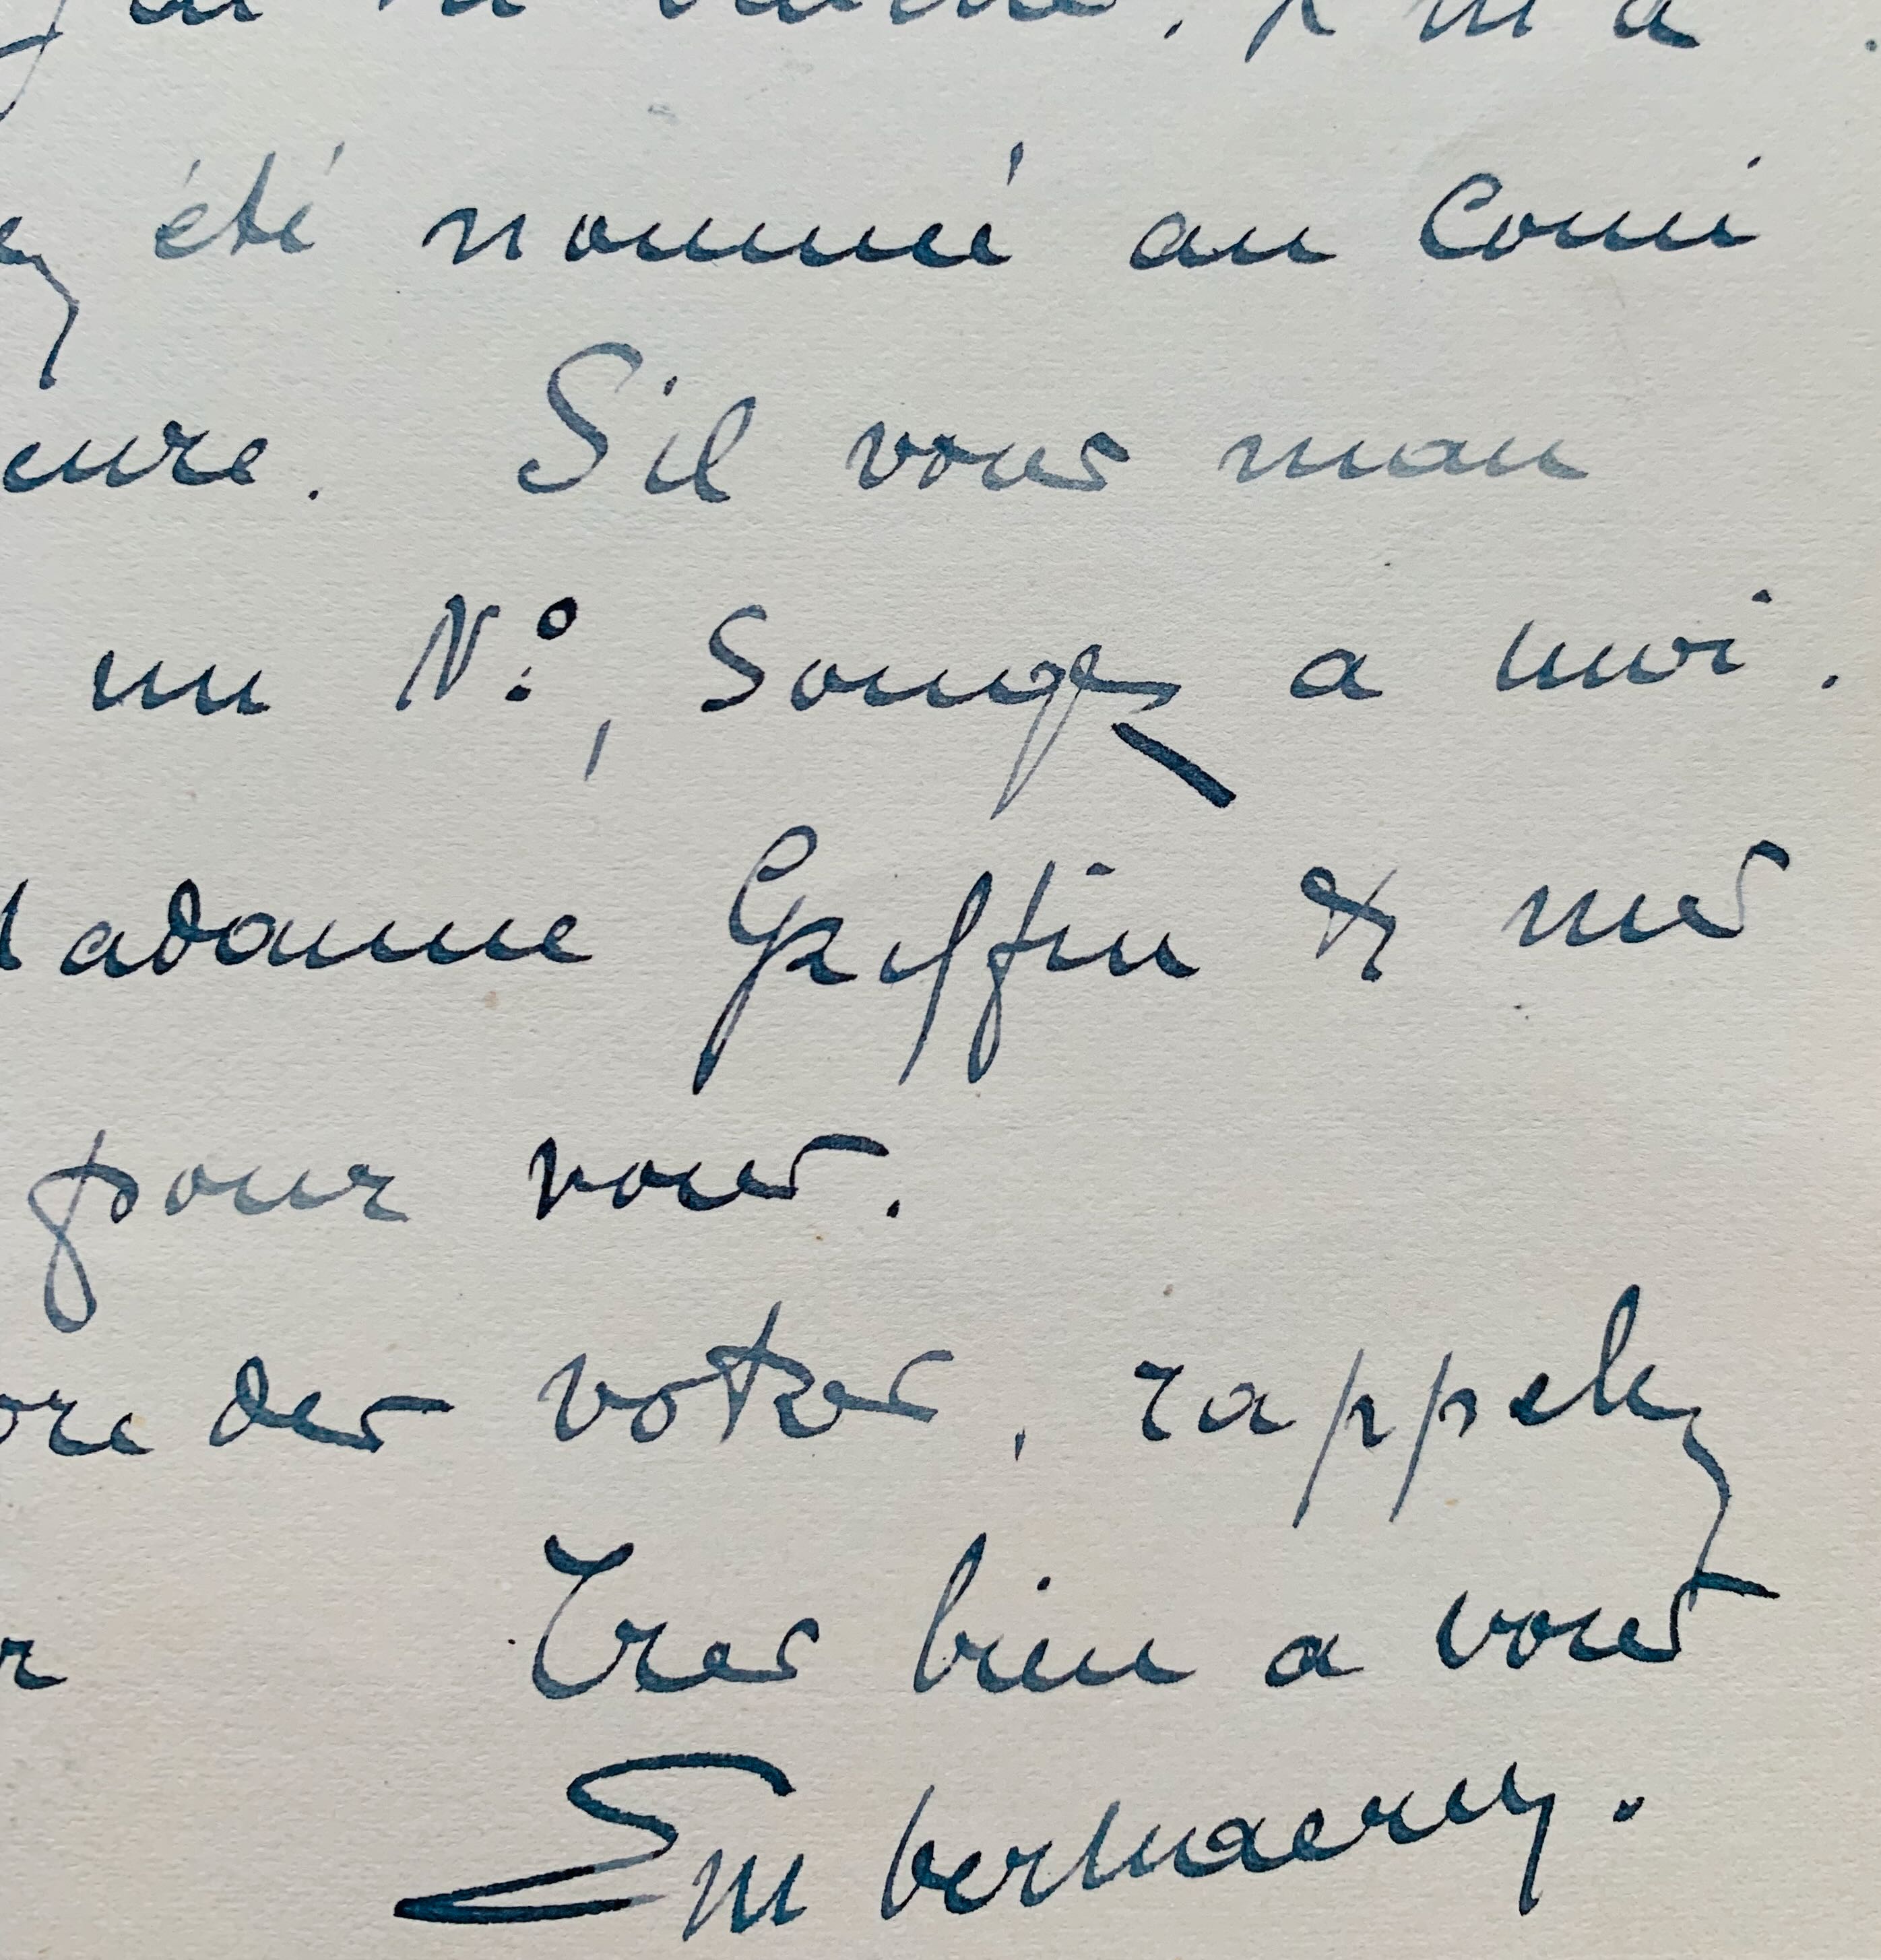 été nommé au Comi
eure. S'il vous man
un N°, songez a moi.
adame Griffin & mes
pour vous.
ore des votres, rappelez
Tres bien a vous
Em Verhaeren.